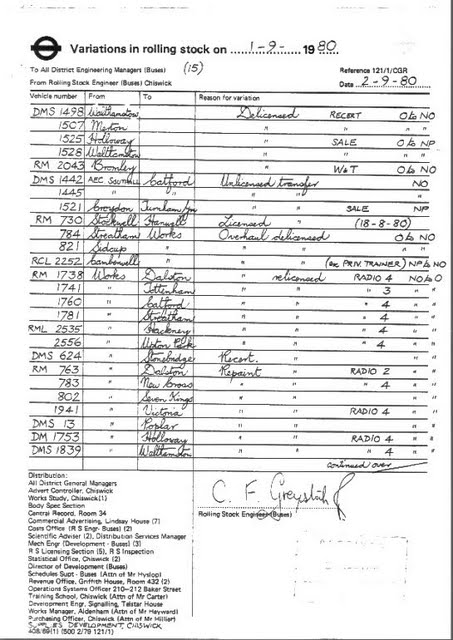 Variations in rolling stock on 1-9- 1980.
To All District Engineering Managers (Buses) (15) Reference 121/1/CGR
From Rolling Stock Engineer (Buses) Chiswick Date 2-9-80
Vehicle number From To Reason for variation
DMS 1498 Walthamstow Delicensed RECERT O to NO
1507 Merton " " " "
1525 Holloway " SALE O to NP
1528 Walthamstow " " " "
RM 2043 Bromley " W&T O to NO
DMS 1442 AEC Southall Catford Unlicensed transfer NO
1445 " " " " "
1521 Croydon Turnham Gn " " SALE NP
RM 730 Stockwell Hanwell Licensed " (18-8-80)
784 Streatham Works Overhaul delicensed O to NO
821 Sidcup " " " " "
RCL 2252 Camberwell " " " (ex PRIV. TRAINER) NP to NO
RM 1738 Works Dalston " relicensed RADIO 4 NO to O
1741 " Tottenham " " " 3 " "
1760 " Catford " " " 4 " "
1781 " Streatham " " " 4 " "
RML 2535 " Hackney " " " 4 " "
2556 " Upton Park " " " 4 " "
DMS 624 " Stonebridge Recert. " " "
RM 763 " Dalston Repaint " RADIO 2 " "
783 " New Cross " " " 4 " "
802 " Seven Kings " " " "
1941 " Victoria " " RADIO 4 " "
DMS 13 " Poplar " " " "
DM 1753 " Holloway " " RADIO 4 " "
DMS 1839 " Walthamstow " " " 4 " "
continued over
Distribution:
All District General Managers
Advert Controller, Chiswick
Works Study, Chiswick (1)
Body Spec Section
Central Record, Room 34
Commercial Advertising, Lindsay House (7)
Costs Office (R S Engr- Buses) (2)
Scientific Adviser (2), Distribution Services Manager
Mech Engr (Development - Buses) (3)
R S Licensing Section (5), R S Inspection
Statistical Office, Chiswick (2)
Director of Development (Buses)
Schedules Supt - Buses (Attn of Mr Hyslop)
Revenue Office, Griffith House, Room 432 (2)
Operations Systems Officer 210-212 Baker Street
Training School, Chiswick (Attn of Mr Carter)
Development Engr, Signalling, Telstar House
Works Manager, Aldenham (Attn of Mr Hayward)
Purchasing Officer, Chiswick (Attn of Mr Hillier)
SUPPLIES DEVELOPMENT, CHISWICK
408/89(1) (500 2/79 121/1)
Rolling Stock Engineer (Buses)